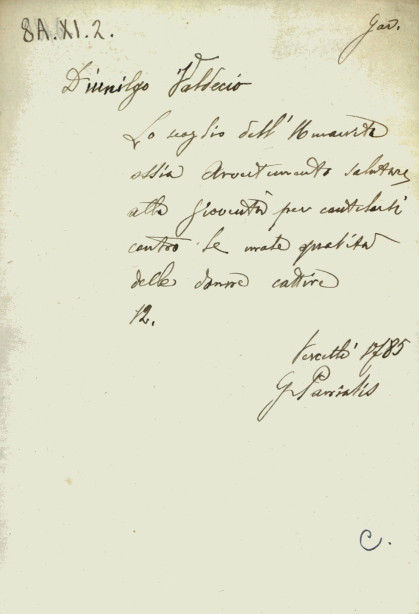 8A.XI.2.
Gav.
Diunilgo Valdecio
Lo scoglio dell' Umanità
ossia Avvertimento salutare
alla gioventù per cautelarsi
contro le male qualità
delle donne cattive
12.
Vercelli 1785
G. Panialis
C.